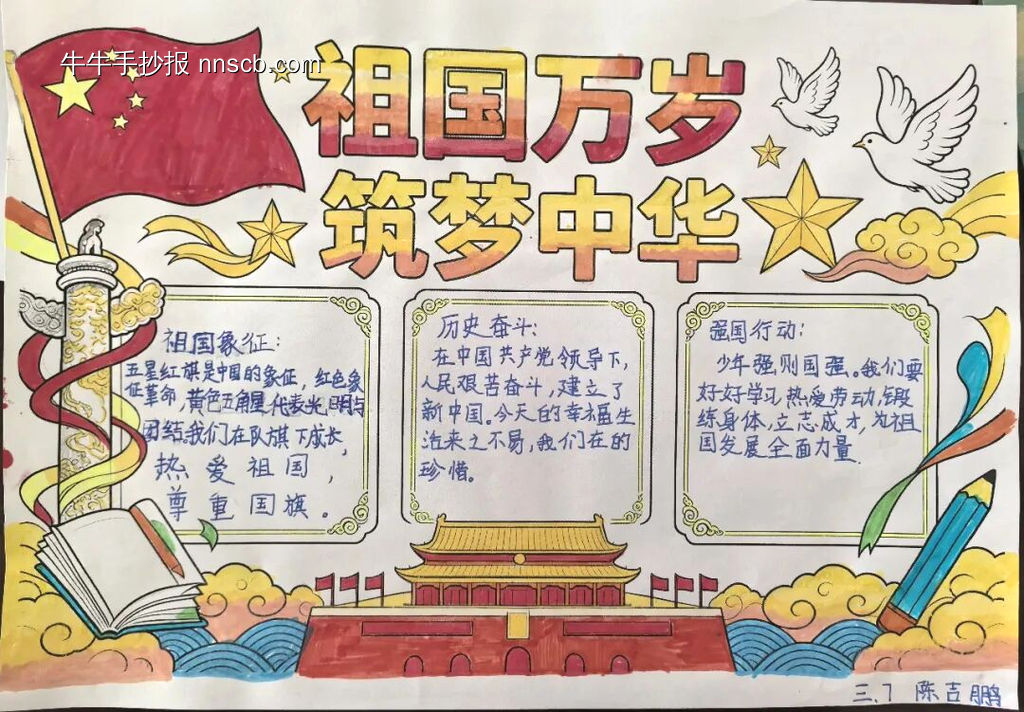 牛牛手抄报 nnscb.com
祖国万岁
筑梦中华
祖国象征:
五星红旗是中国的象征,红色象
征革命,黄色五角星代表光明与
团结,我们在队旗下成长,
热爱祖国,
尊重国旗。
历史奋斗:
在中国共产党领导下,
人民艰苦奋斗,建立了
新中国。今天的幸福生
活来之不易,我们在的
珍惜。
强国行动:
少年强,则国强。我们要
好好学习,热爱劳动,锻
练身体,立志成才,为祖
国发展全面力量.
三.7 陈吉鹏